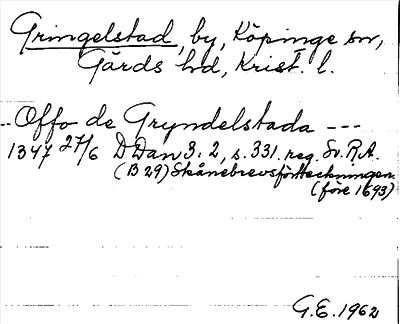 Gringelstad, by, Köpinge sn,
Gärds hd, Krist. l.
-- Offo de Gryndelstada ---
1347 27/6 D Dan 3:2, s. 331. reg. Sv. R.A.
(B 29) Skånebrevsförteckningen.
(före 1693)
G.E. 1962